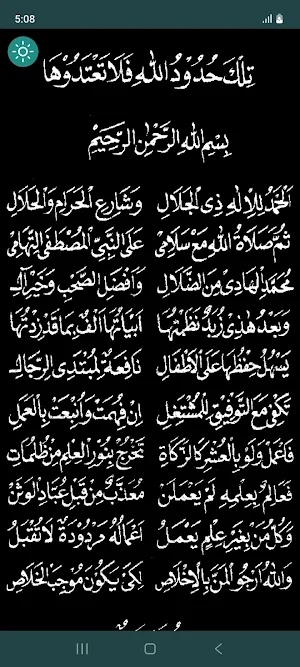 5:08
تِلْكَ حُدُوْدُ اللهِ فَلَا تَعْتَدُوْهَا
بِسْمِ اللهِ الرَّحْمٰنِ الرَّحِيْمِ
اَلْحَمْدُ لِلْاِلٰهِ ذِى الْجَلَالِ وَشَارِعِ الْحَرَامِ وَالْحَلَالِ
ثُمَّ صَلَاةُ اللهِ مَعْ سَلَامِىْ عَلَى النَّبِيِّ الْمُصْطَفَى التِّهَامِىْ
مُحَمَّدِ الْهَادِىْ مِنَ الضَّلَالِ وَاَفْضَلِ الصَّحْبِ وَخَيْرِ اٰلِ
وَبَعْدُ هٰذِىْ زُبَدٌ نَظَمْتُهَا اَبْيَاتُهَا اَلْفٌ بِمَا قَدْ زِدْتُهَا
يَسْهُلُ حِفْظُهَا عَلَى الْاَطْفَالِ نَافِعَةٌ لِمُبْتَدِى الرِّجَالِ
تَكْفِىْ مَعَ التَّوْفِيْقِ لِلْمُشْتَغِلِ اِنْ فُهِمَتْ وَاُتْبِعَتْ بِالْعَمَلِ
فَاعْمَلْ وَلَوْ بِالْعُشْرِ كَالزَّكَاةِ تَخْرُجْ بِنُوْرِ الْعِلْمِ مِنْ ظُلُمَاتِ
فَعَالِمٌ بِعِلْمِهِ لَمْ يَعْمَلَنْ مُعَذَّبٌ مِنْ قَبْلِ عُبَّادِ الْوَثَنْ
وَكُلُّ مَنْ بِغَيْرِ عِلْمٍ يَعْمَلُ اَعْمَالُهُ مَرْدُوْدَةٌ لَا تُقْبَلُ
وَاللهَ اَرْجُو الْمَنَّ بِالْاِخْلَاصِ لِكَىْ يَكُوْنَ مُوْجِبَ الْخَلَاصِ